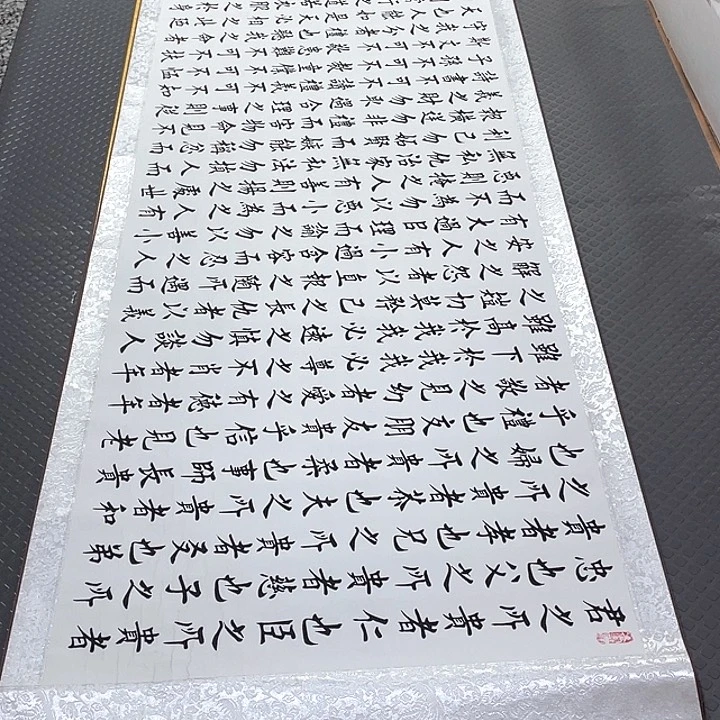 君之所貴者仁也臣之所貴者
忠也父之所貴者慈也子之所
貴者孝也兄之所貴者友也弟
之所貴者恭也夫之所貴者和
也婦之所貴者柔也事師長貴
乎禮也交朋友貴乎信也見老
者敬之見幼者愛之有德者年
雖下於我我必尊之不肖者年
雖高於我我必遠之慎勿談人
之短切莫矜己之長仇者以義
解之怨者以直報之隨所遇而
安之人有小過含容而忍之人
有大過以理諭之勿以善小
而不為勿以惡小而為之人有
惡則掩之人有善則揚之處世
無私仇治家無私法勿損人而
利己勿妒賢而嫉能勿稱忿而
報橫逆勿非禮而害物命見不
義之財勿取遇合理之事則從
詩書不可不讀禮義不可不知
子孫不可不教僮僕不可不恤
斯文不可不敬患難不可不扶
守我之分者禮也聽我之命者